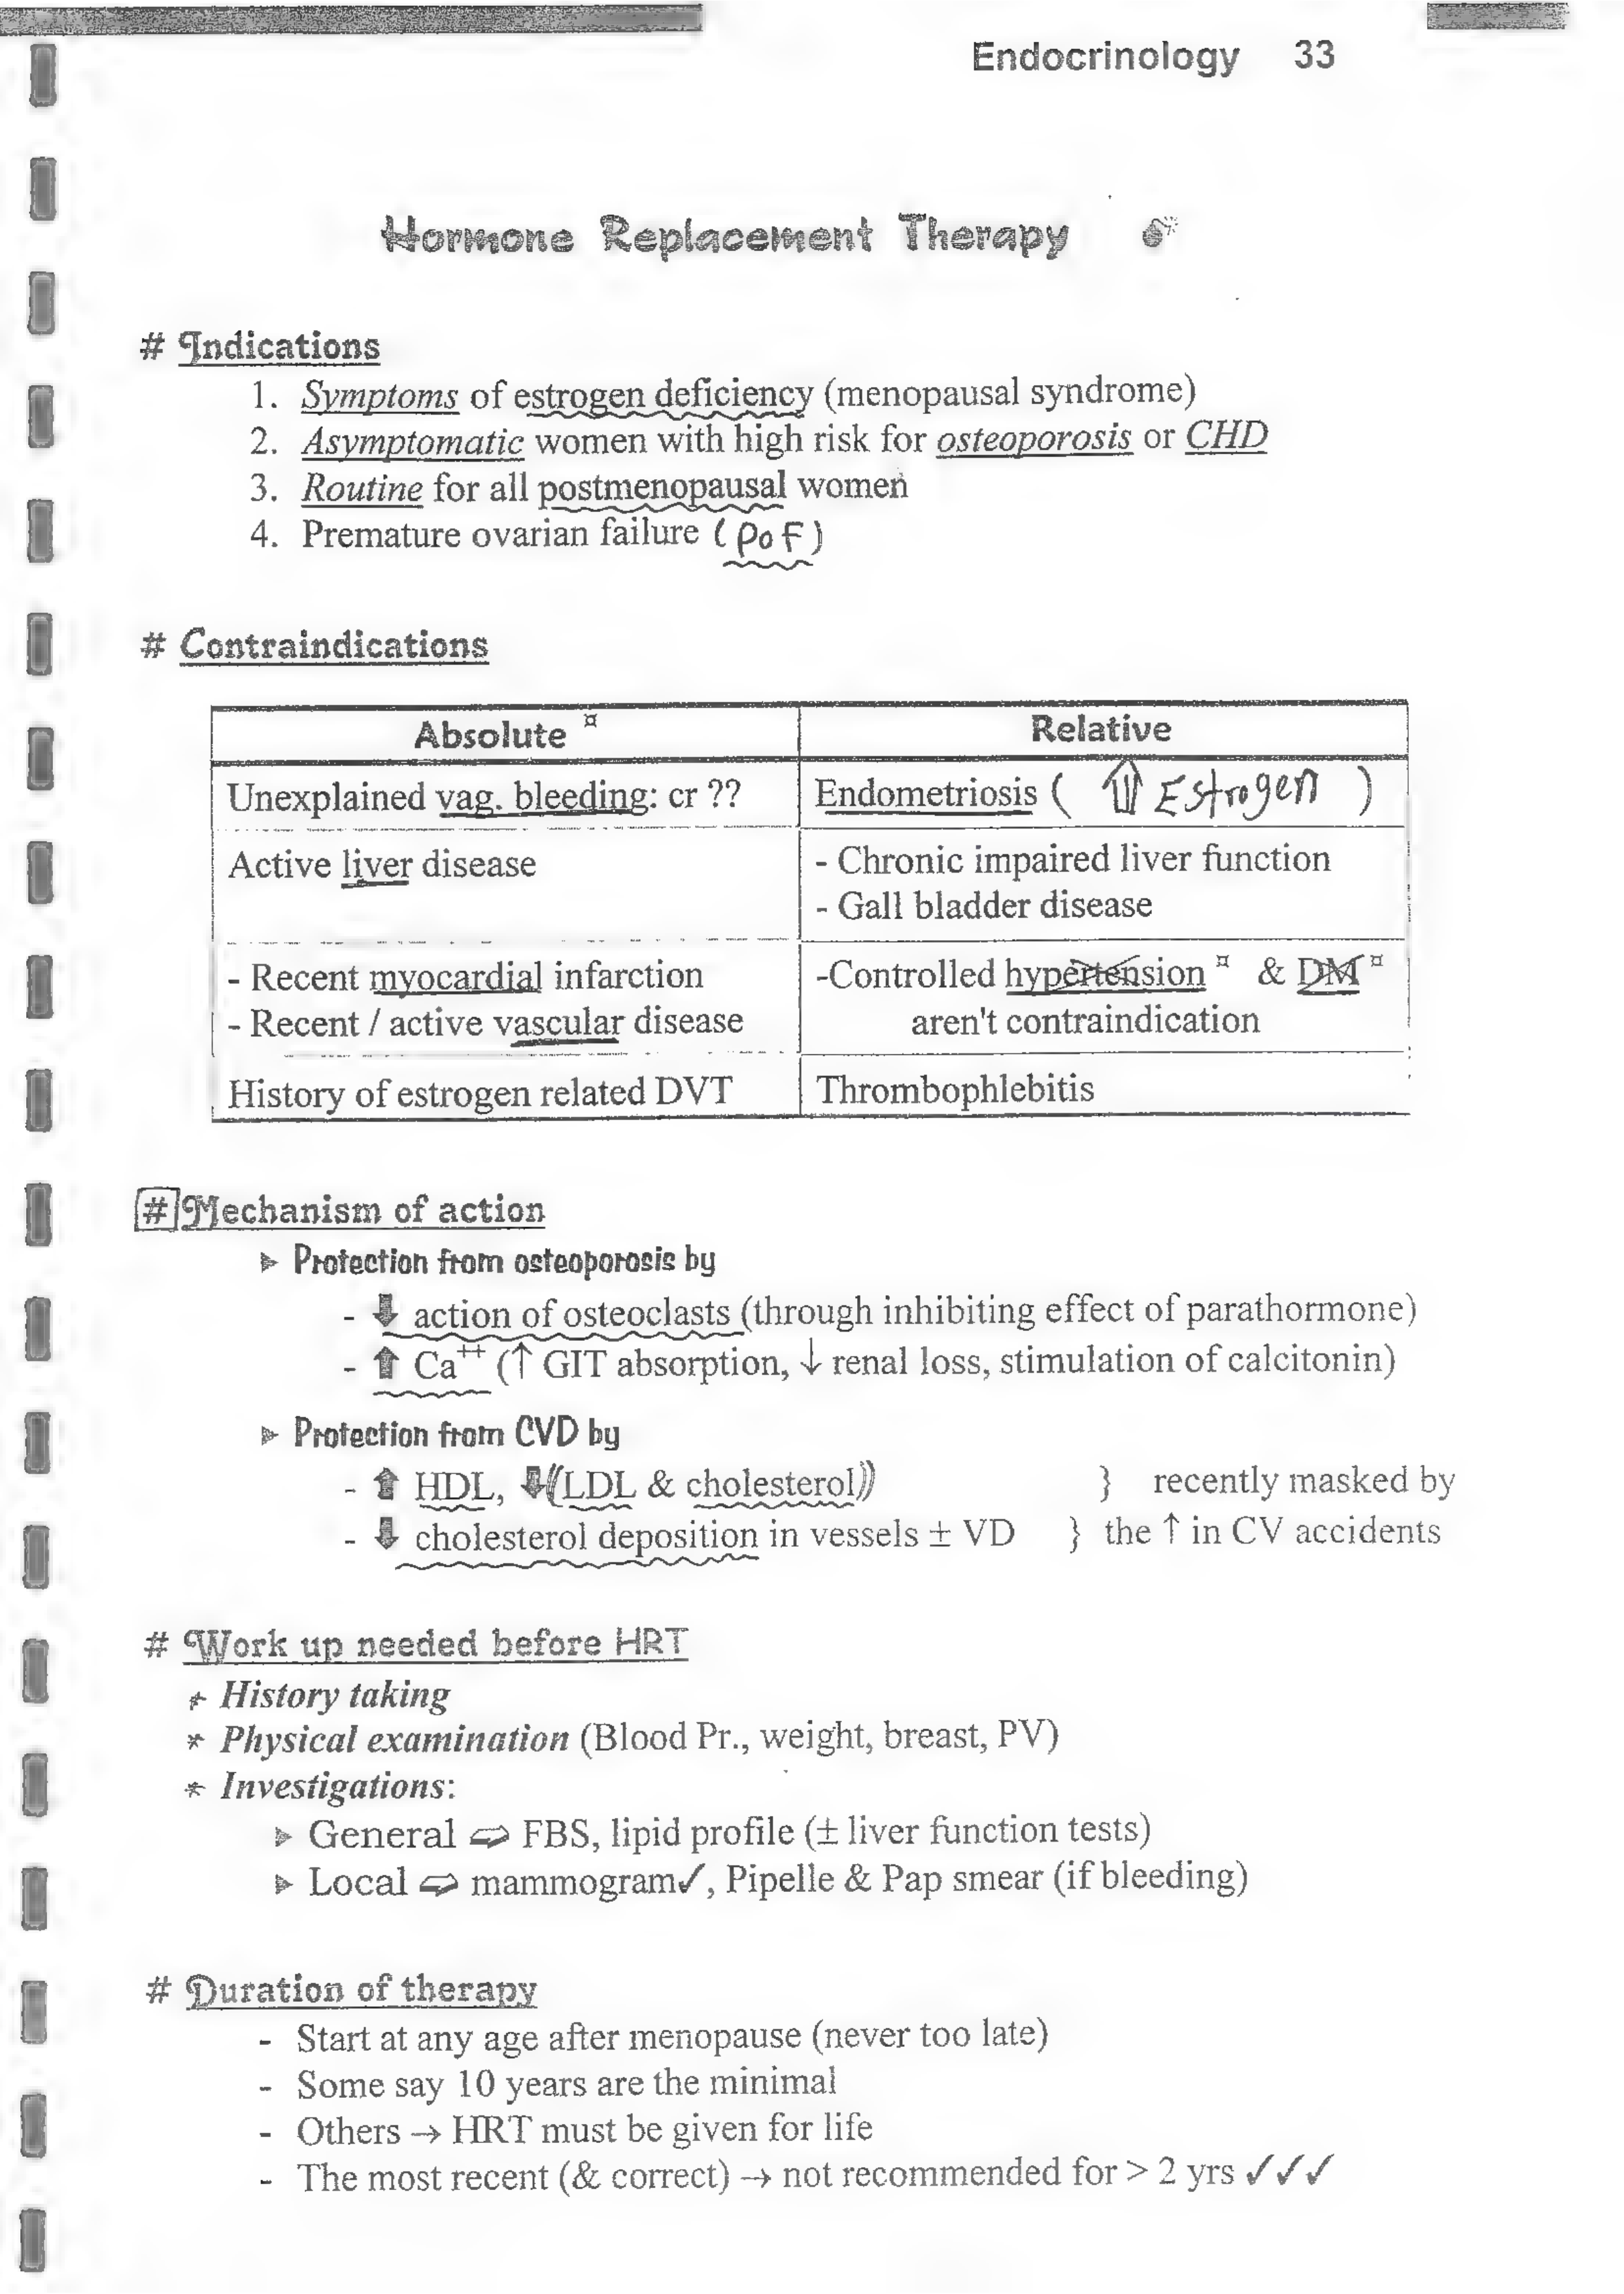 Endocrinology 33
Hormone Replacement Therapy
# Indications
1. Symptoms of estrogen deficiency (menopausal syndrome)
2. Asymptomatic women with high risk for osteoporosis or CHD
3. Routine for all postmenopausal women
4. Premature ovarian failure (POF)
# Contraindications
Absolute ¤ Relative
Unexplained vag. bleeding: cr ?? Endometriosis ( ⇑ Estrogen )
Active liver disease - Chronic impaired liver function
- Gall bladder disease
- Recent myocardial infarction -Controlled hypertension ¤ & DM ¤
- Recent / active vascular disease aren't contraindication
History of estrogen related DVT Thrombophlebitis
# Mechanism of action
➤ Protection from osteoporosis by
- ⬇ action of osteoclasts (through inhibiting effect of parathormone)
- ⬆ Ca++ (↑ GIT absorption, ↓ renal loss, stimulation of calcitonin)
➤ Protection from CVD by
- ⬆ HDL, ⬇((LDL & cholesterol)) } recently masked by
- ⬇ cholesterol deposition in vessels ± VD } the ↑ in CV accidents
# Work up needed before HRT
* History taking
* Physical examination (Blood Pr., weight, breast, PV)
* Investigations:
➤ General ⇨ FBS, lipid profile (± liver function tests)
➤ Local ⇨ mammogram✓, Pipelle & Pap smear (if bleeding)
# Duration of therapy
- Start at any age after menopause (never too late)
- Some say 10 years are the minimal
- Others → HRT must be given for life
- The most recent (& correct) → not recommended for > 2 yrs ✓✓✓